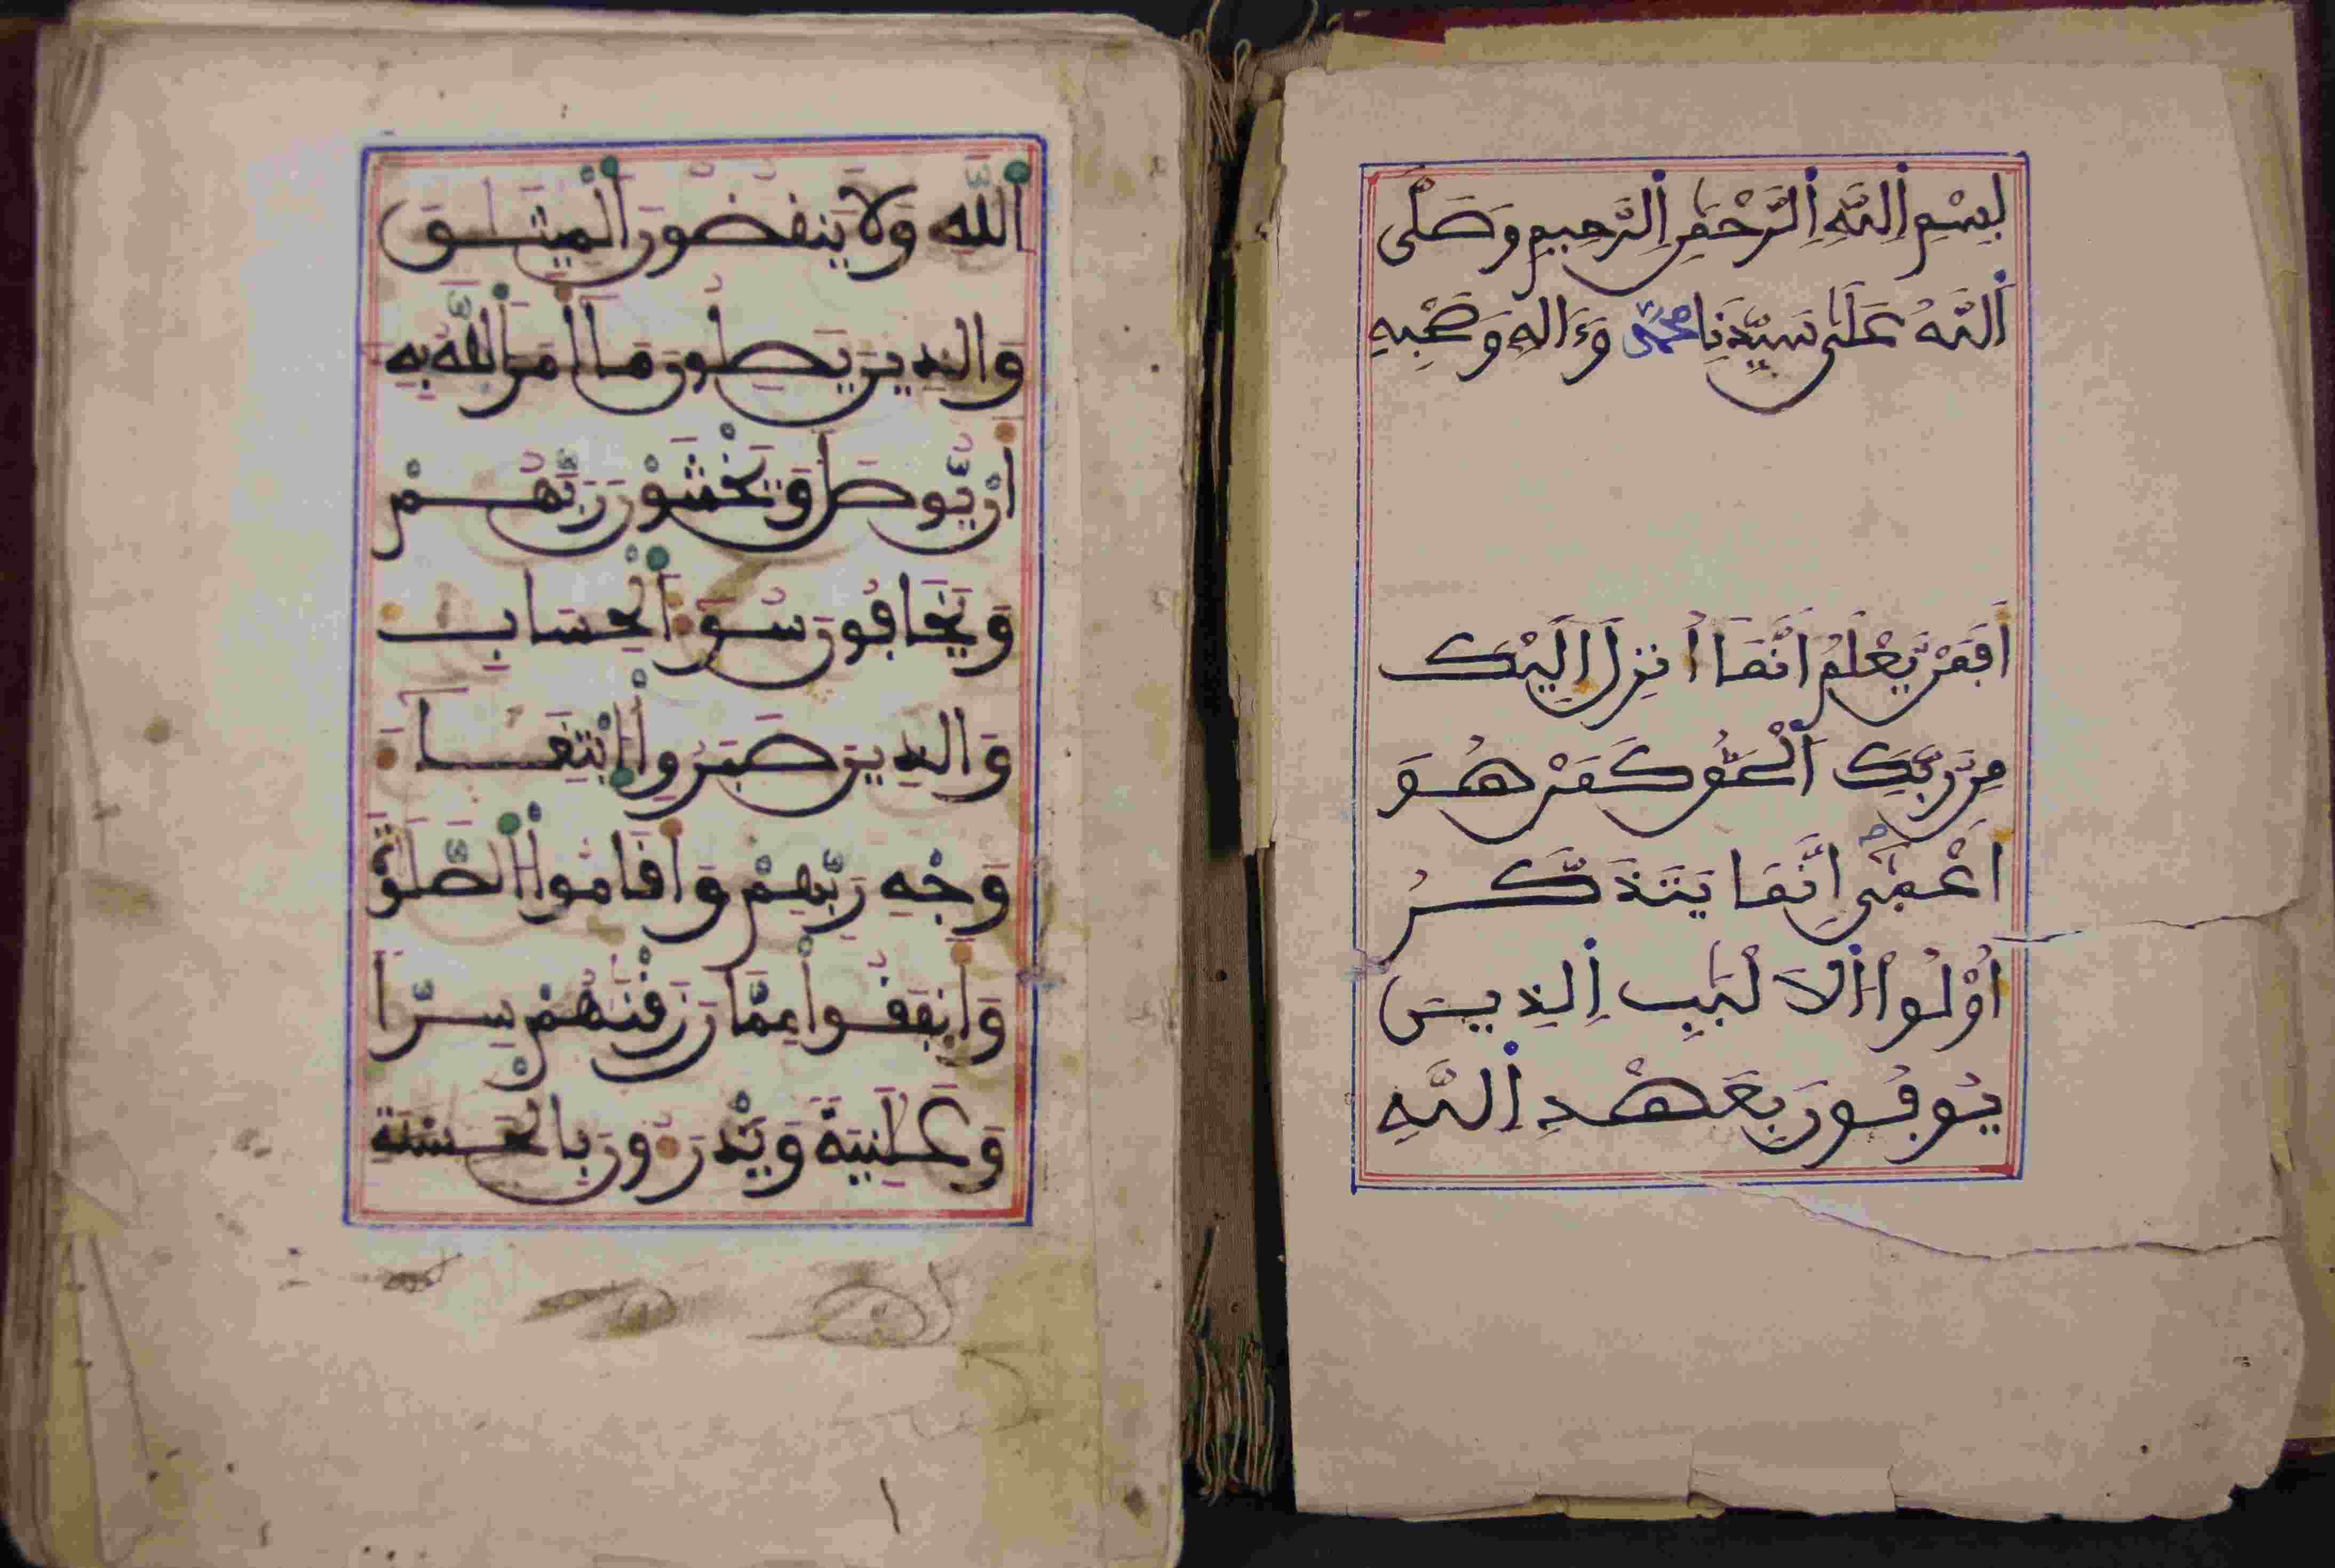 بِسْمِ اِ۬للَّهِ اِ۬لرَّحْمَٰنِ اِ۬لرَّحِيمِ وَصَلَّى
اَ۬للَّهُ عَلَىٰ سَيِّدِنَا مُحَمَّد وَءَالِهِ وَصَحْبِهِ
أَفَمَنْ يَّعْلَمُ أَنَّمَا أُنزِلَ إِلَيْكَ
مِن رَّبِّكَ اَ۬لْحَقُّ كَمَنْ هُوَ
أَعْمَىٰ إِنَّمَا يَتَذَكَّرُ
أُوْلُواْ اُ۬لَالْبَٰبِ اِ۬لذِينَ
يُوفُونَ بِعَهْدِ اِ۬للَّهِ
اِ۬للَّهِ وَلَا يَنقُضُونَ اَ۬لْمِيثَٰقَ
وَالذِينَ يَصِلُونَ مَا أَمَرَ اَ۬للَّهُ بِهِ
أَنْ يُّوصَلَ وَيَخْشَوْنَ رَبَّهُمْ
وَيَخَافُونَ سُوءَ اَ۬لْحِسَابِ
وَالذِينَ صَبَرُواْ اُ۪بْتِغَاءَ
وَجْهِ رَبِّهِمْ وَأَقَامُواْ اُ۬لصَّلَوٰةَ
وَأَنفَقُواْ مِمَّا رَزَقْنَٰهُمْ سِرّاً
وَعَلَٰنِيَةً وَيَدْرَءُونَ بِالْحَسَنَةِ
١